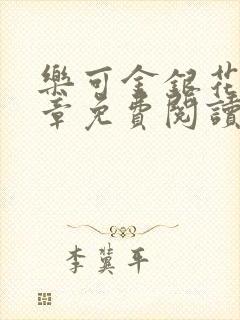 樂可金銀花
章免費閱讀
李冀平